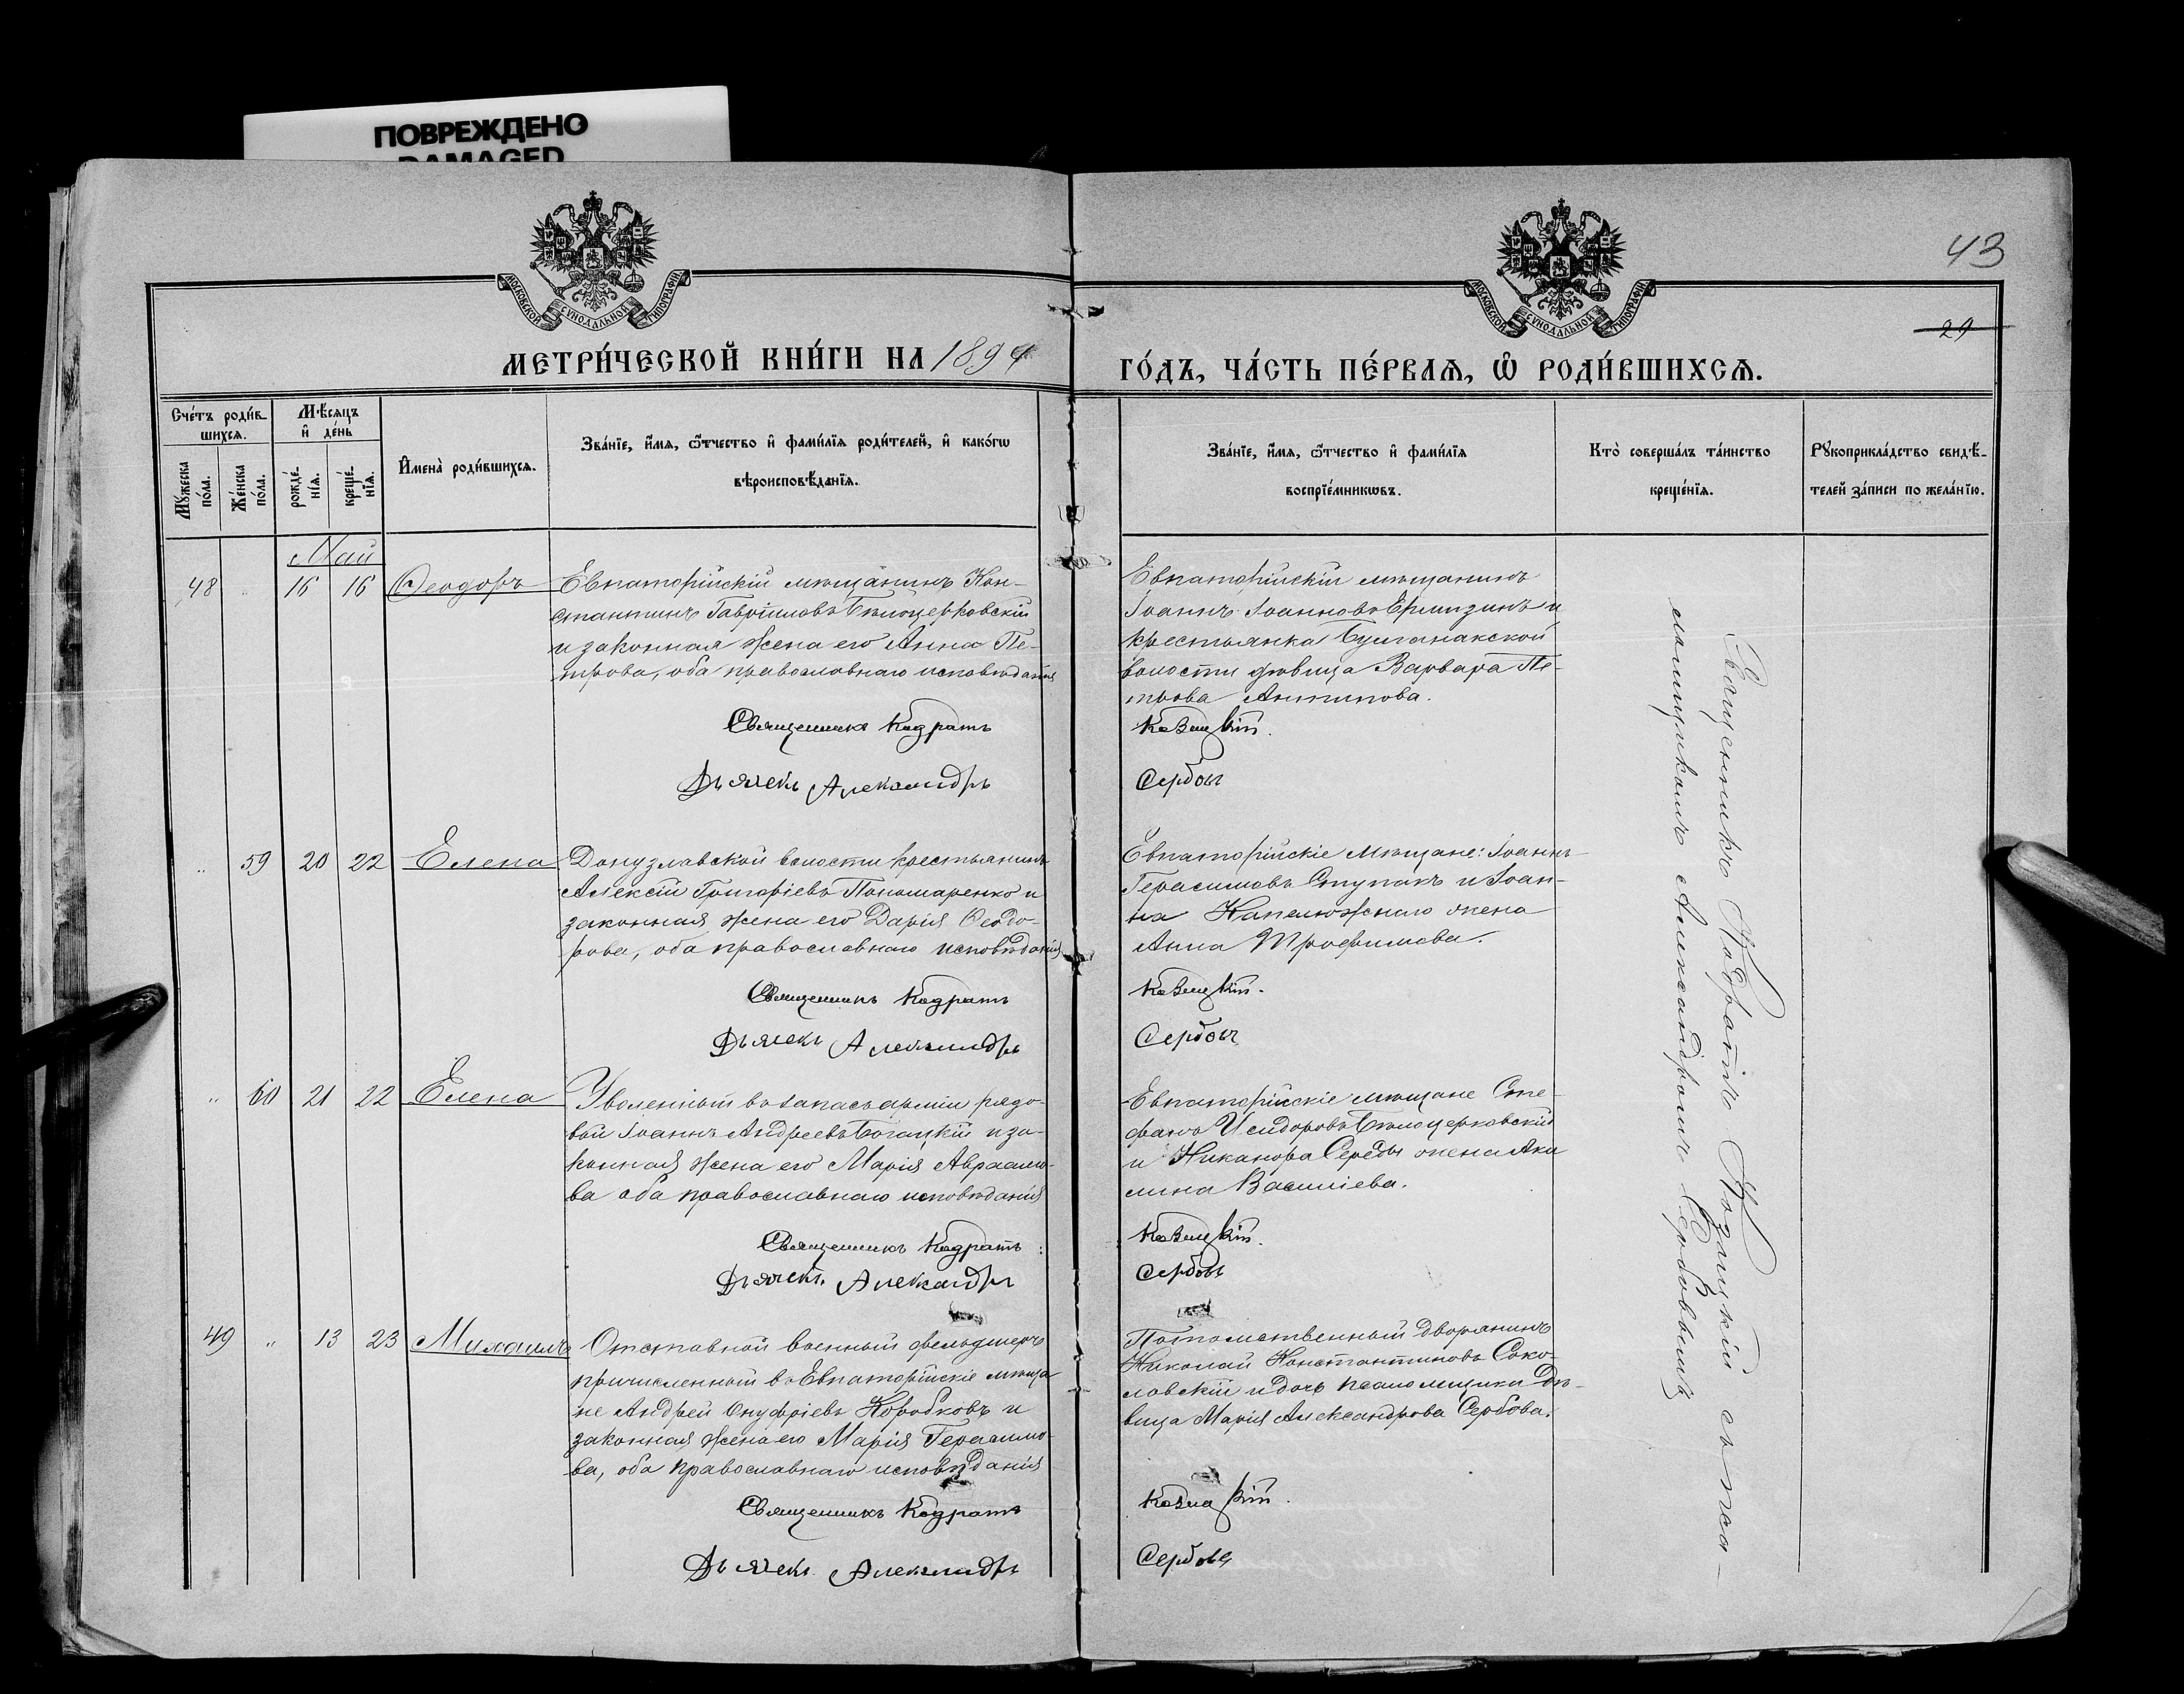 ПОВРЕЖДЕНО
DAMAGED
МОСКОВСКОЙ СУНОДАЛЬНОЙ ТИПОГРАФІИ
МОСКОВСКОЙ СУНОДАЛЬНОЙ ТИПОГРАФІИ
43
29
МЕТРИ́ЧЕСКОЙ КНИ́ГИ НА 1894
ГО́ДЪ, ЧА́СТЬ ПЕ́РВАѦ, Ѡ҆ РОДИ́ВШИХСѦ.
Сче́тъ роди́в-
шихсѧ.
Мѣ́сѧцъ
и҆ де́нь
Мꙋ́жеска
по́ла.
Же́нска
по́ла.
рожде́-
нїѧ.
креще́-
нїѧ.
И҆мена̀ роди́вшихсѧ.
Зва́нїе, и҆́мѧ, ѻ҆́тчество и҆ фами́лїѧ роди́телей, и҆ како́гѡ
вѣроисповѣ́данїѧ.
Зва́нїе, и҆́мѧ, ѻ҆́тчество и҆ фами́лїѧ
воспрїе́мникѡвъ.
Кто̀ соверша́лъ та́инство
креще́нїѧ.
Рꙋкоприкла́дство свидѣ́-
телей за́писи по жела́нїю.
Май
48 " 16 16 Ѳеодоръ
Евпаторійскій мѣщанинъ Кон-
стантинъ Гавріиловъ Бѣлоцерковскій
и законная жена его Анна Пе-
трова, оба православнаго исповѣданія
Священникъ Кодратъ
Дьячекъ Александръ
Евпаторійскій мѣщанинъ
Іоаннъ Іоанновъ Ермизинъ и
крестьянка Булганакской
волости дѣвица Варвара Пе-
трова Антипова.
Козицкій.
Сербовъ
" 59 20 22 Елена
Донузлавской волости крестьянинъ
Алексій Григоріевъ Пономаренко и
законная жена его Дарія Ѳеодо-
рова, оба православнаго исповѣданія
Священникъ Кодратъ
Дьячекъ Александръ
Евпаторійскіе мѣщане: Іоаннъ
Герасимовъ Ступакъ и Іоан-
на Капелюжнаго жена
Анна Трофимова.
Козицкій.
Сербовъ
" 60 21 22 Елена
Уволенный въ запасъ арміи рядо-
вой Іоаннъ Андреевъ Богацкій и за-
конная жена его Марія Авраамо-
ва оба православнаго исповѣданія
Священникъ Кодратъ
Дьячекъ Александръ
Евпаторійскіе мѣщане Сте-
фанъ Исидоровъ Бѣлоцерковскій
и Никанора Середы жена Аки
лина Василіева.
Козицкій.
Сербовъ
49 " 13 23 Михаилъ
Отставной военный фельдшеръ
причисленный въ Евпаторійскіе мѣща
не Андрей Онуфріевъ Коробковъ и
законная жена его Марія Герасимо-
ва, оба православнаго исповѣданія
Священникъ Кодратъ
Дьячекъ Александръ
Потомственный дворянинъ
Николай Константиновъ Соко-
ловскій и дочь псаломщика дѣ-
вица Марія Александрова Сербова.
Козицкій.
Сербовъ
Священникъ Кодратъ Козицкій съ пса-
ломщикомъ Александромъ Сербовымъ